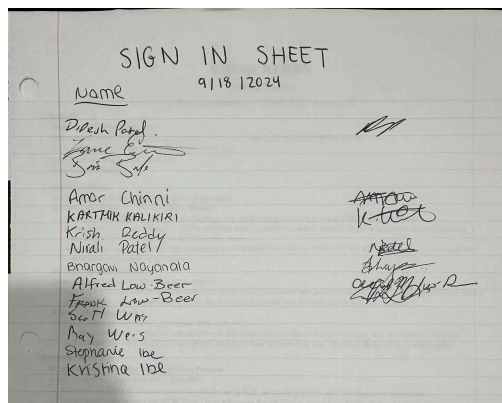 SIGN IN SHEET
9/18/2024
Name
Dipesh Patel.
Amar Chinni
KARTHIK KALIKIRI
Krish Reddy
Nirali Patel
Bhargavi Nayanala
Alfred Low-Beer
FRANK Low-Beer
Scott Weis
Ray Weis
Stephanie Ibe
Kristina Ibe